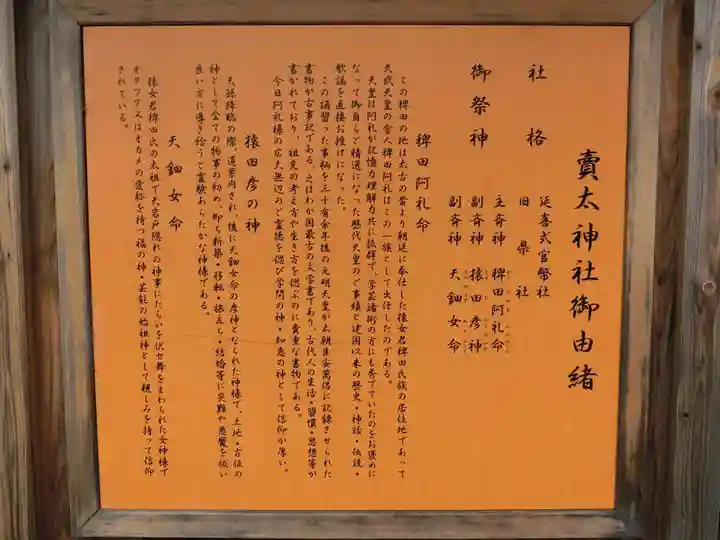 賣太神社御由緒
社格
延喜式官幣社
旧県社
御祭神
主斉神 稗田阿礼命
副斉神 猿田彦神
副斉神 天鈿女命
稗田阿礼命
この稗田の地は太古の昔より朝廷に奉仕した猿女君稗田氏族の居住地であって
天武天皇の舎人稗田阿礼はこの一族として出仕したのである。
天皇は阿礼が記憶力理解力共に抜群で、学芸諸術の方にも秀でていたのをお褒めに
なって御自らご精選になった歴代天皇のご事績と建国以来の歴史・神話・伝説・
歌謡を直接お授けになった。
この誦習った事柄を三十有余年後の元明天皇が太朝臣安萬侶に記録させられた
書物が古事記である。之はわか国最古の文学書であり、古代人の生活・習慣・思想等が
書かれており、祖先の考え方や生き方を偲ぶのに貴重な書物である。
今日阿礼様の広大無辺のご霊徳を偲び学問の神・知恵の神として信仰が厚い。
猿田彦の神
天孫降臨の際、道案内され、後に天鈿女命の彦神となられた神様で、土地・方位の
神として全ての物事の初め、即ち新築・移転・旅立ち・結婚等に災難や悪魔を祓い
良い方に導き給うて霊験あらたかな神様である。
天鈿女命
猿女君稗田氏の太祖で天岩戸隠れの神事にたらいを伏せ舞をまわられた女神様で
オタフクスはオカメの愛称を持つ福の神・芸能の始祖神として親しみを持って信仰
されている。